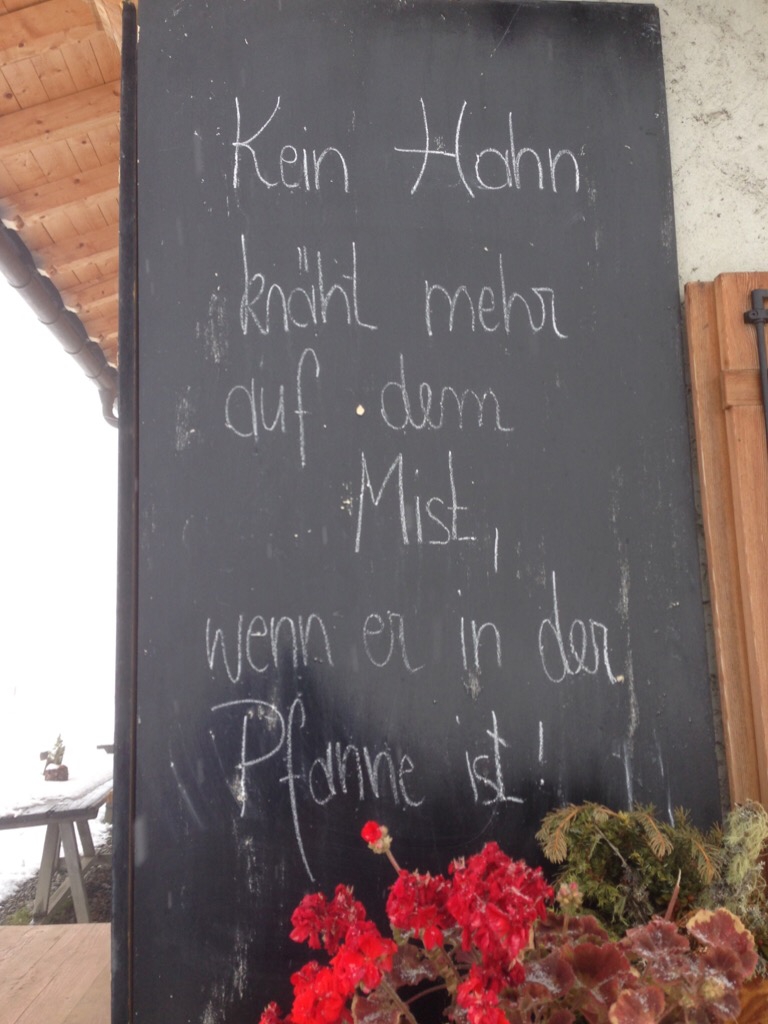 Kein Hahn
kräht mehr
auf dem
Mist,
wenn er in der
Pfanne ist!